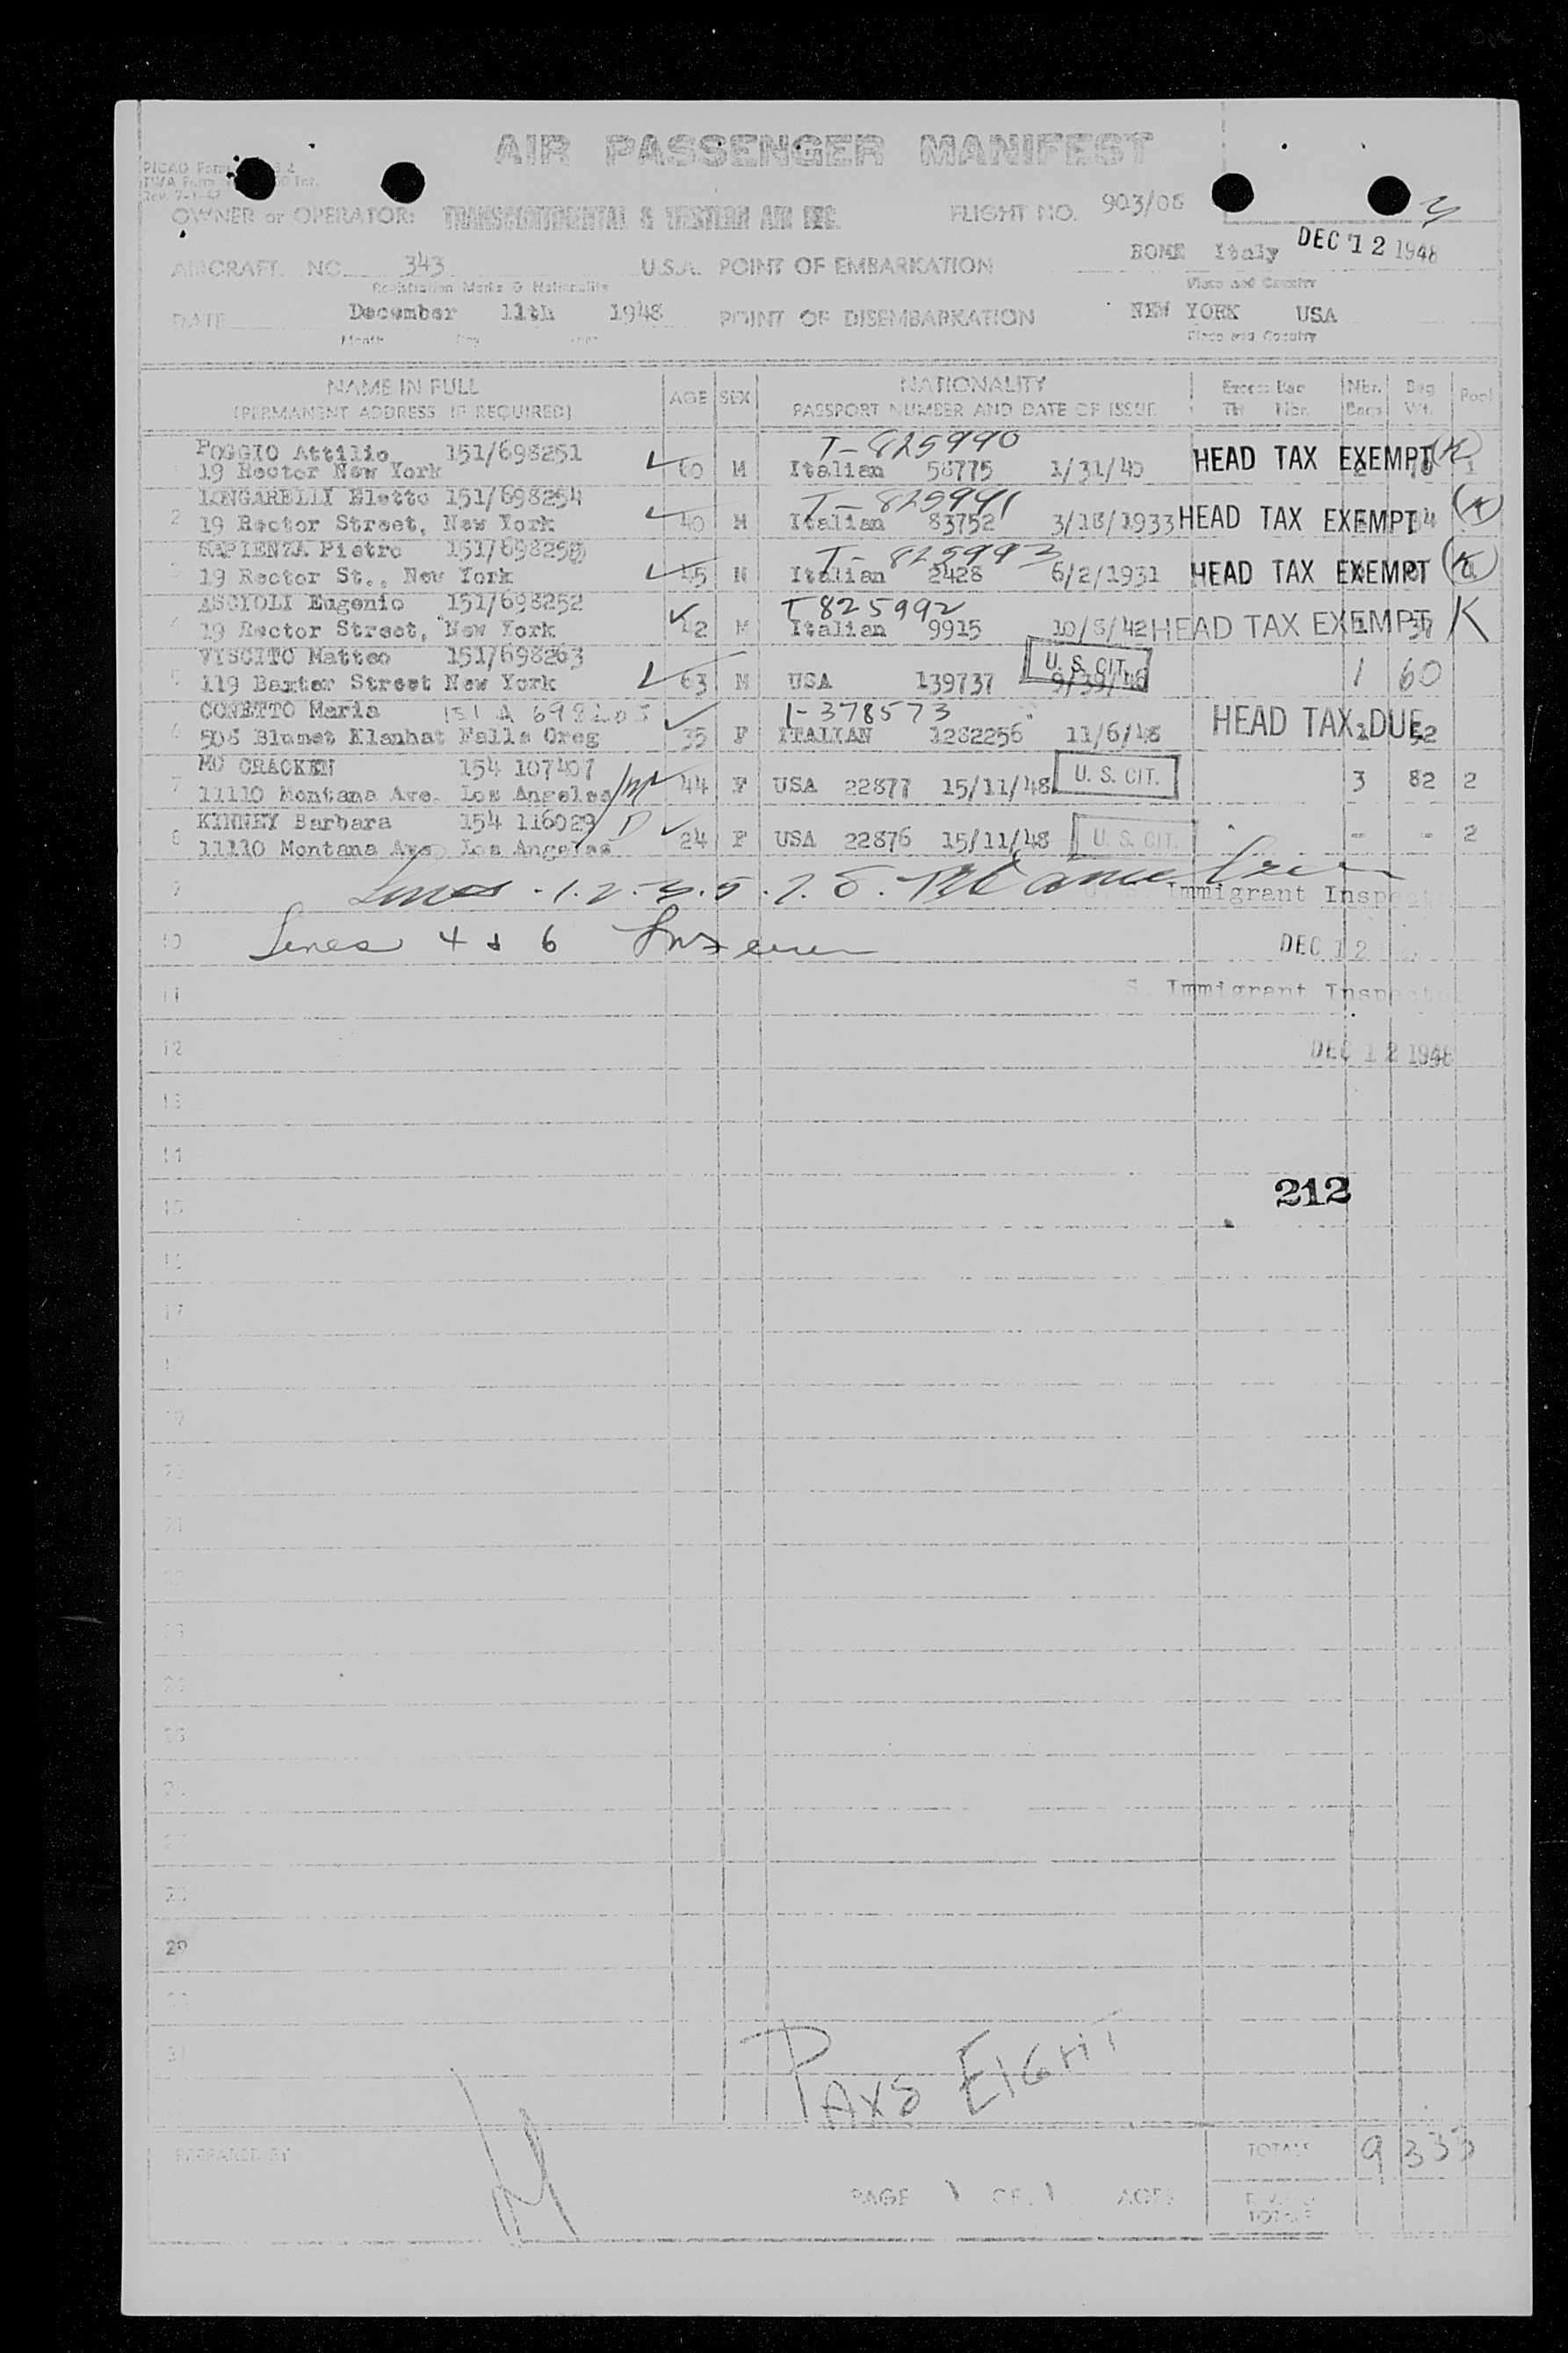 AIR PASSENGER MANIFEST
OWNER or OPERATOR: TRANSCONTINENTAL & WESTERN AIR INC. FLIGHT NO. 903/08
AIRCRAFT NO. 343 U.S.A. POINT OF EMBARKATION ROME Italy DEC 12 1948
Registration Marks & Nationality Place and Country
DATE December 11th 1948 POINT OF DISEMBARKATION NEW YORK USA
Month Day Year Place and Country
NAME IN FULL AGE SEX NATIONALITY Excess Bag Nbr. Bag Pool
(PERMANENT ADDRESS IF REQUIRED) PASSPORT NUMBER AND DATE OF ISSUE Tkt Nbr. Bags Wt.
POGGIO Attilio 151/698251 T-825990
19 Rector New York 60 M Italian 58775 1/31/40 HEAD TAX EXEMPT (K)
LONGARELLI Eletto 151/698254 T-825991
2 19 Rector Street, New York 40 M Italian 83752 3/18/1933 HEAD TAX EXEMPT (K)
SAPIENZA Pietro 151/698258 T-825993
3 19 Rector St., New York 45 M Italian 2428 6/2/1931 HEAD TAX EXEMPT (K)
ASCIOLI Eugenio 151/698252 T825992
4 19 Rector Street, New York 42 M Italian 9915 10/8/42 HEAD TAX EXEMPT K
VISCITO Matteo 151/698263 U. S. CIT.
5 119 Baxter Street New York 63 M USA 139737 1 60
CONETTO Maria 151 A 698205 I-378573
6 508 Blumet Klanhat Falls Oreg 35 F ITALIAN 1282256 11/6/48 HEAD TAX DUE
MC CRACKEN 154 107407
7 11110 Montana Ave. Los Angeles 44 F USA 22877 15/11/48 U. S. CIT. 3 82 2
KINNEY Barbara 154 116029
8 11110 Montana Ave Los Angeles 24 F USA 22876 15/11/48 U. S. CIT. - - 2
9 Lines 1. 2. 3. 5. 7. 8.
Immigrant Inspector
10 Lines 4 & 6
DEC 12
11 S. Immigrant Inspector
12 DEC 12 1948
13
14
212
15
16
17
18
19
20
21
22
23
24
25
26
27
28
29
30
31
PAXS EIGHT
PREPARED BY TOTALS 9 333
PAGE 1 OF 1 PAGES
TOTALS